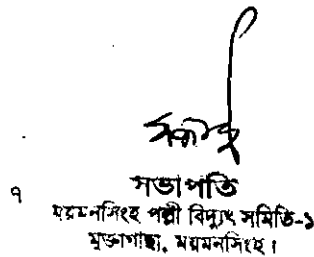 সভাপতি
৭
ময়মনসিংহ পল্লী বিদ্যুৎ সমিতি-১
মুক্তাগাছা, ময়মনসিংহ।